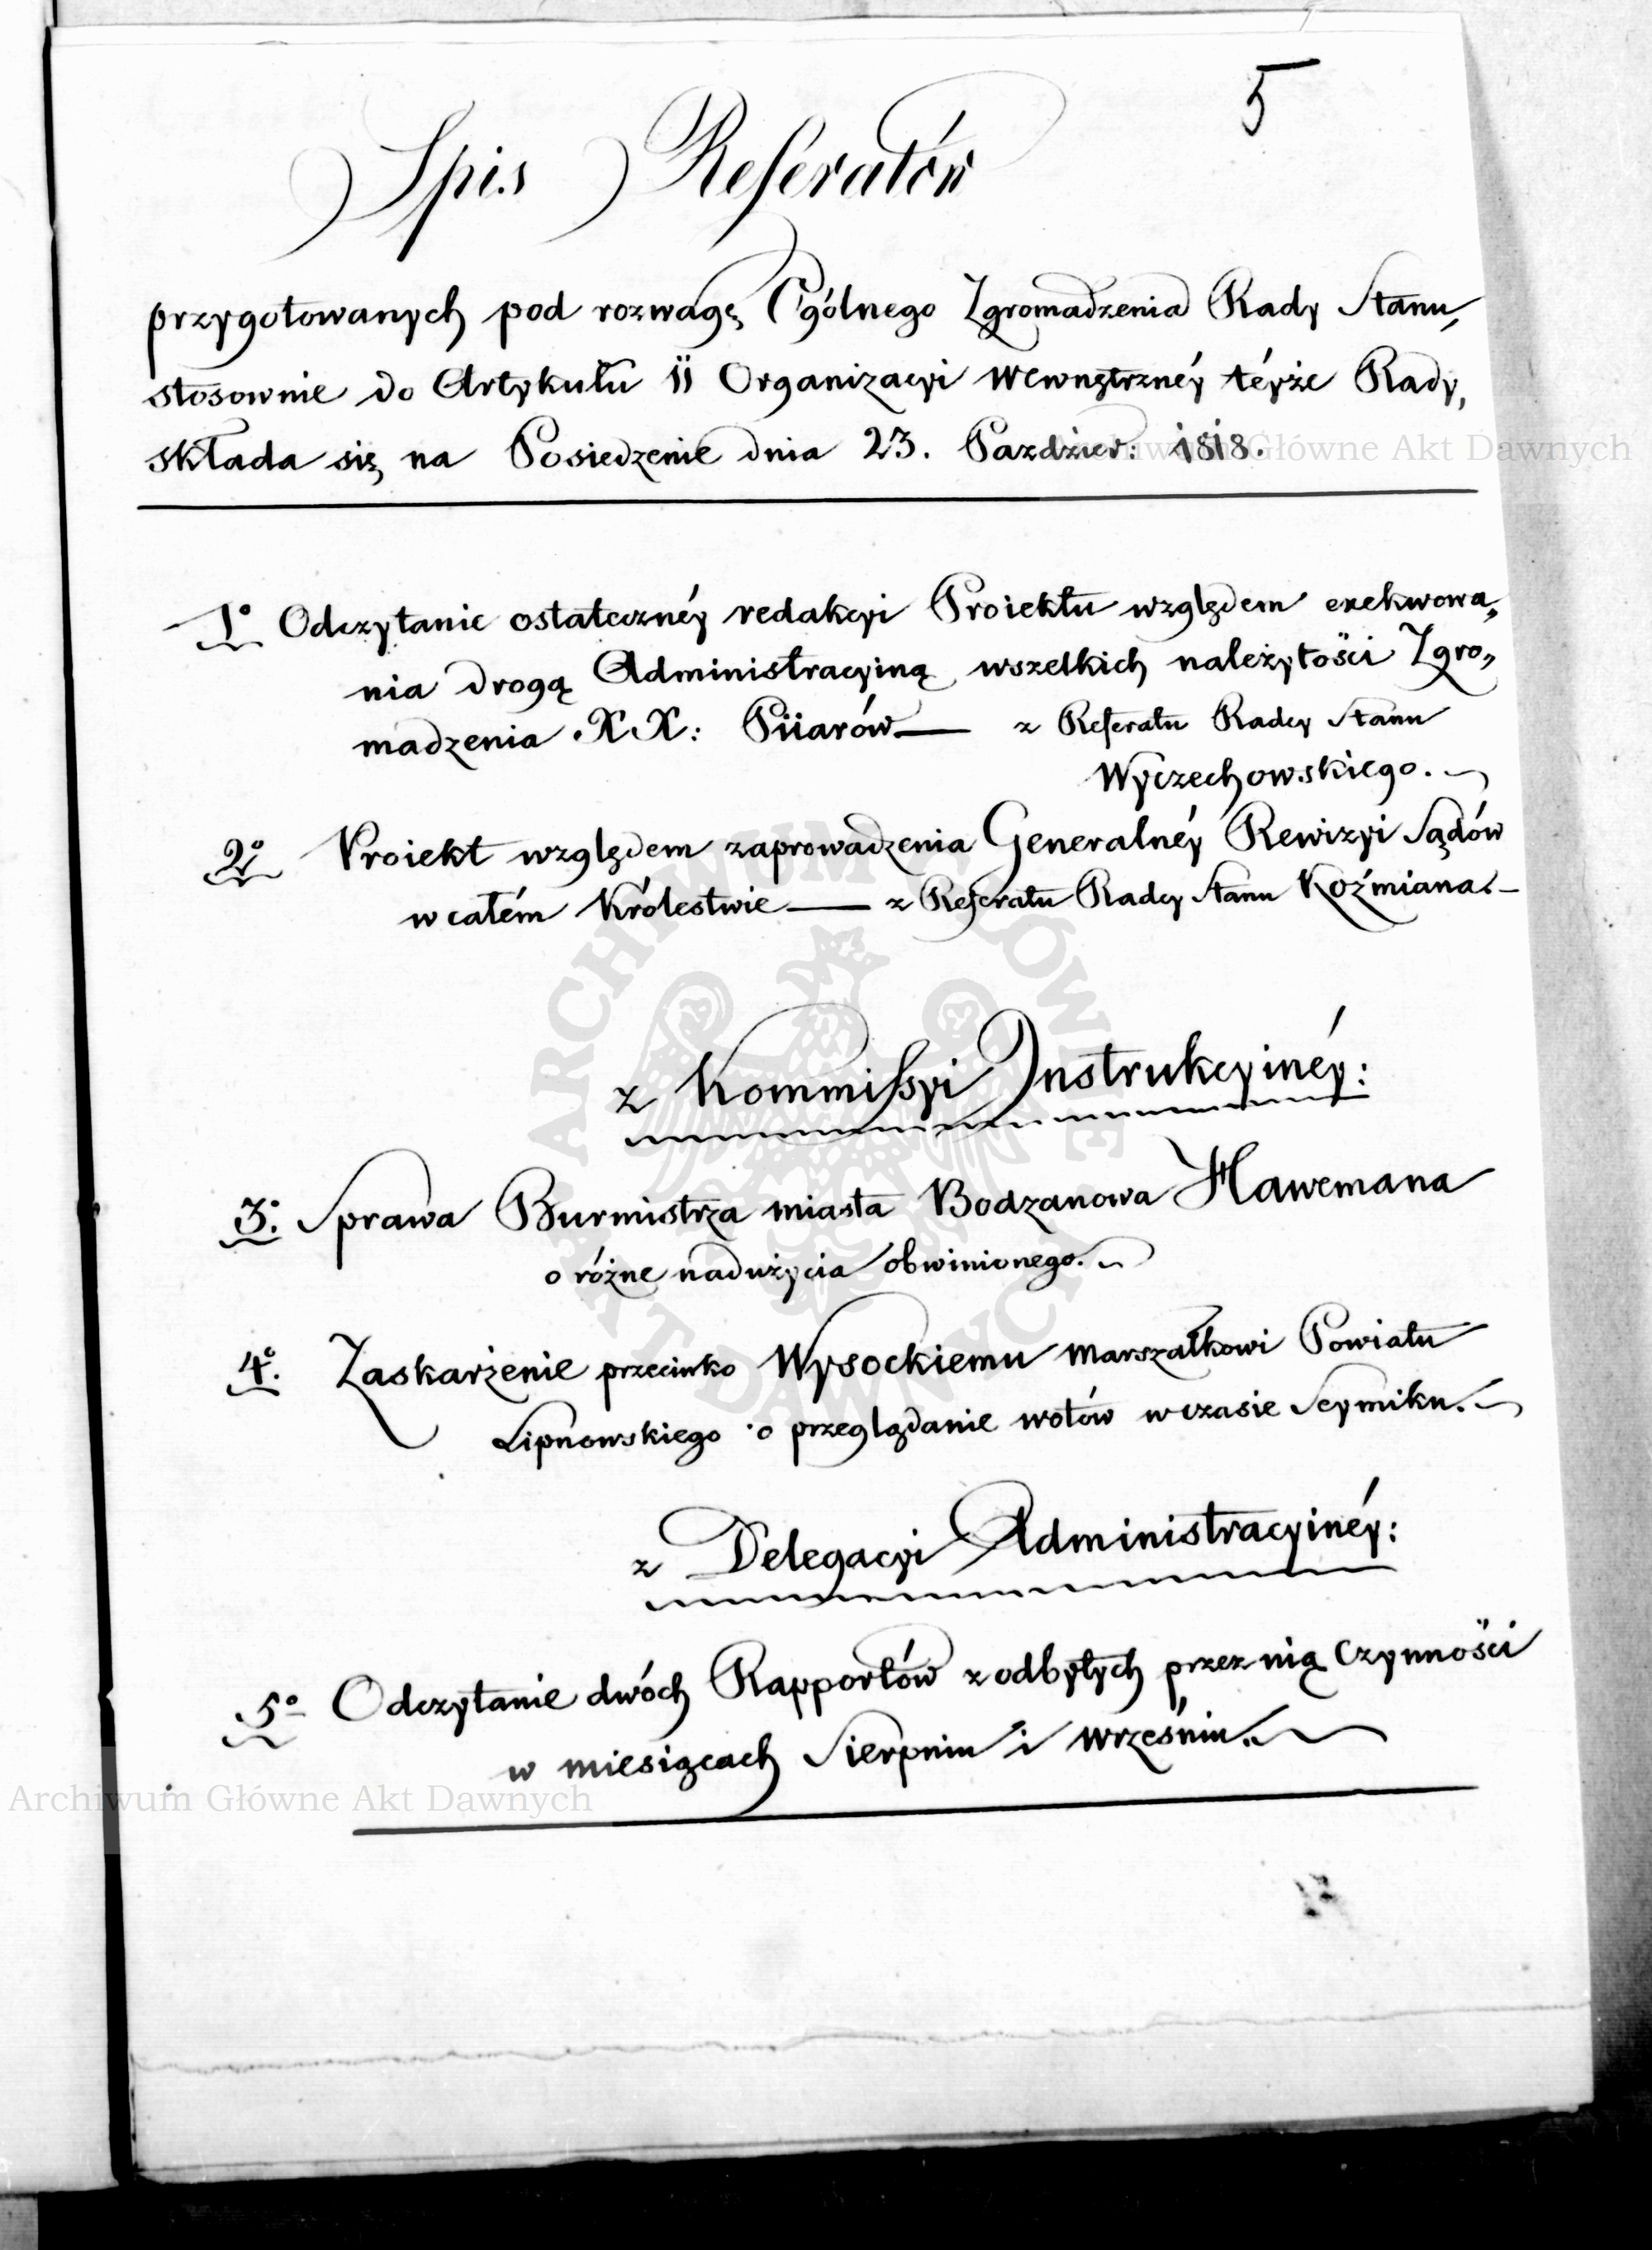 5
Spis Referatów
przygotowanych pod rozwagę Ogólnego Zgromadzenia Rady Stanu,
stosownie do Artykułu 11 Organizacyi wewnętrznéy téyże Rady,
składa się na Posiedzenie dnia 23. Pazdzier: 1818.
1° Odczytanie ostatecznéy redakcyi Proiektu względem exekwowa„
nia drogą Administracyiną wszelkich należytości Zgro„
madzenia XX: Piiarów — z Referatu Radcy Stanu
Wyczechowskiego.
2° Proiekt względem zaprowadzenia Generalnéy Rewizyi Sądów
w całém Królestwie — z Referatu Radcy Stanu Koźmiana. —
z Kommissyi Instrukcyinéy:
3° Sprawa Burmistrza miasta Bodzanowa Hawemana
o różne nadużycia obwinionego.
4° Zaskarżenie przeciwko Wysockiemu Marszałkowi Powiatu
Lipnowskiego o przeglądanie wotów w czasie Seymiku.
z Delegacyi Administracyinéy:
5° Odczytanie dwóch Rapportów z odbytych przez nią Czynności
w miesiącach Sierpniu i Wrześniu.
Archiwum Główne Akt Dawnych
Archiwum Główne Akt Dawnych
ARCHIWUM GŁÓWNE AKT DAWNYCH